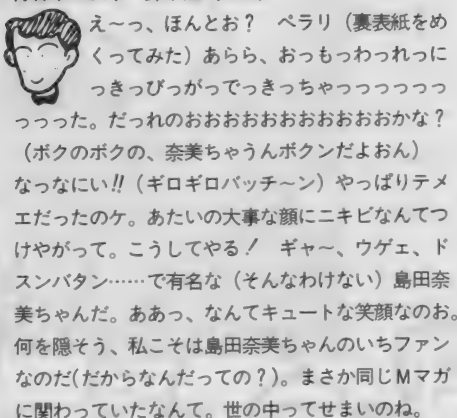 え〜っ、ほんとお？　ペラリ（裏表紙をめ
くってみた）あらら、おっもっわっれっに
っきっびっがっでっきっちゃっつっつっつっ
っつった。だっれのおおおおおおおおおおおかな？
（ボクのボクの、奈美ちゃうんボクンだよおん）
なっなにい!!（ギロギロバッチ〜ン）やっぱりテメ
エだったのケ。あたいの大事な顔にニキビなんてつ
けやがって。こうしてやる！　ギャ〜、ウゲェ、ド
スンバタン……で有名な（そんなわけない）島田奈
美ちゃんだ。ああっ、なんてキュートな笑顔なのお。
何を隠そう、私こそは島田奈美ちゃんのいちファン
なのだ（だからなんだっての？）。まさか同じＭマガ
に関わっていたなんて。世の中ってせまいのね。